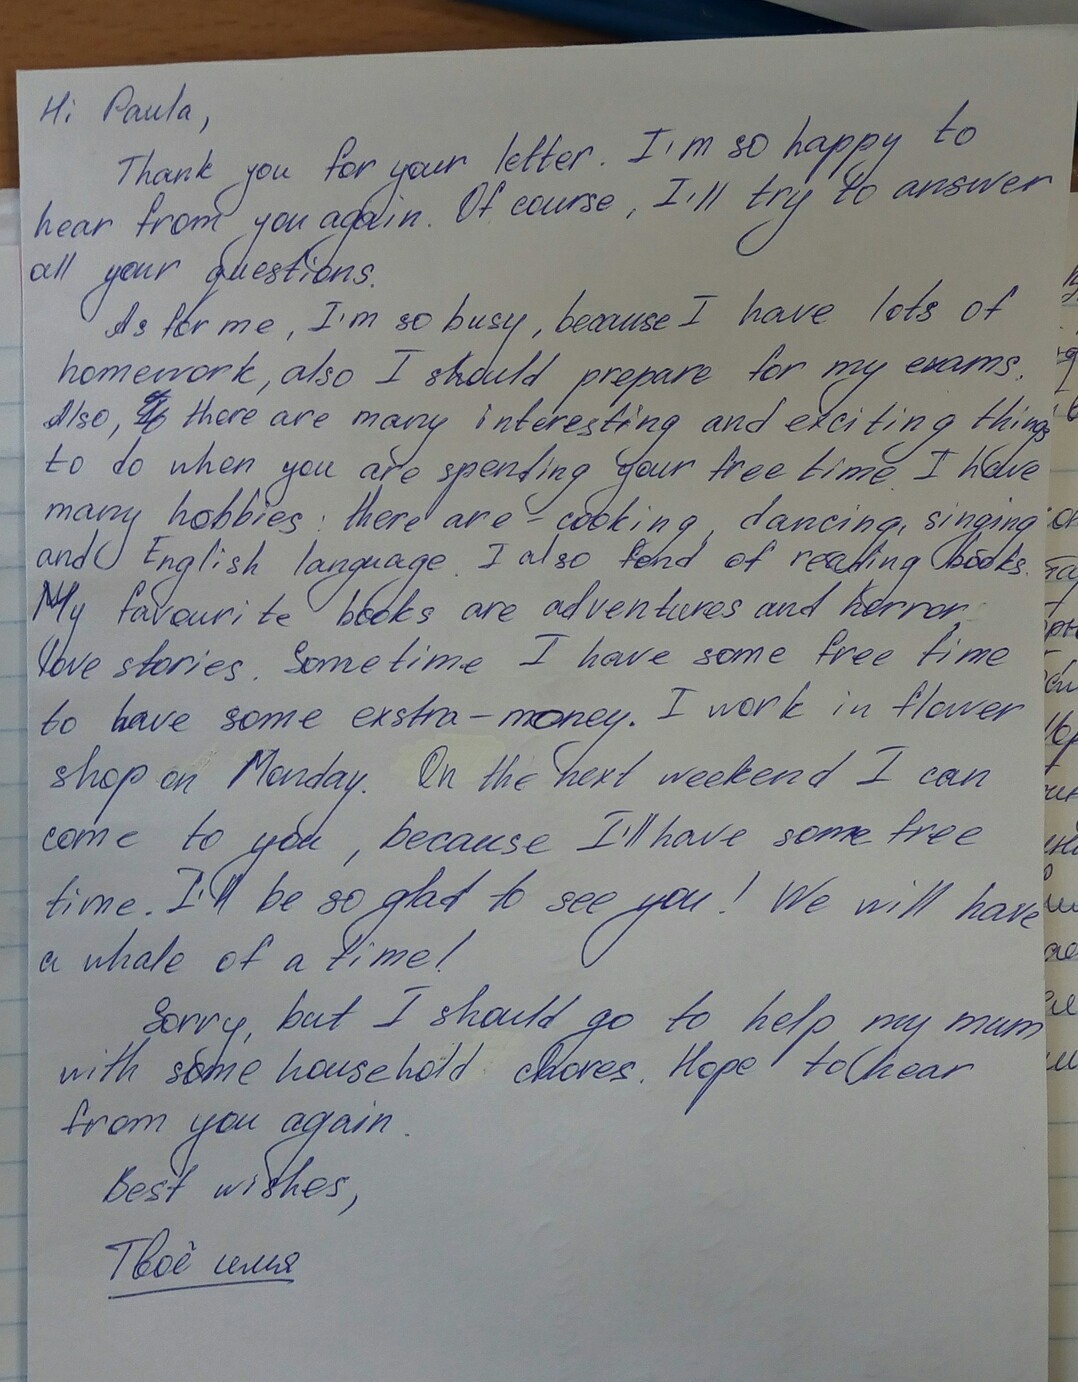 Hi Paula,
Thank you for your letter. I'm so happy to
hear from you again. Of course, I'll try to answer
all your questions.
As for me, I'm so busy, because I have lots of
homework, also I should prepare for my exams.
Also, there are many interesting and exciting things
to do when you are spending your free time. I have
many hobbies: there are - cooking, dancing, singing
and English language. I also fond of reading books.
My favourite books are adventures and horror
love stories. Sometime I have some free time
to have some exstra-money. I work in flower
shop on Monday. On the next weekend I can
come to you, because I'll have some free
time. I'll be so glad to see you! We will have
a whale of a time!
Sorry, but I should go to help my mum
with some household chores. Hope to hear
from you again.
Best wishes,
Твоё имя